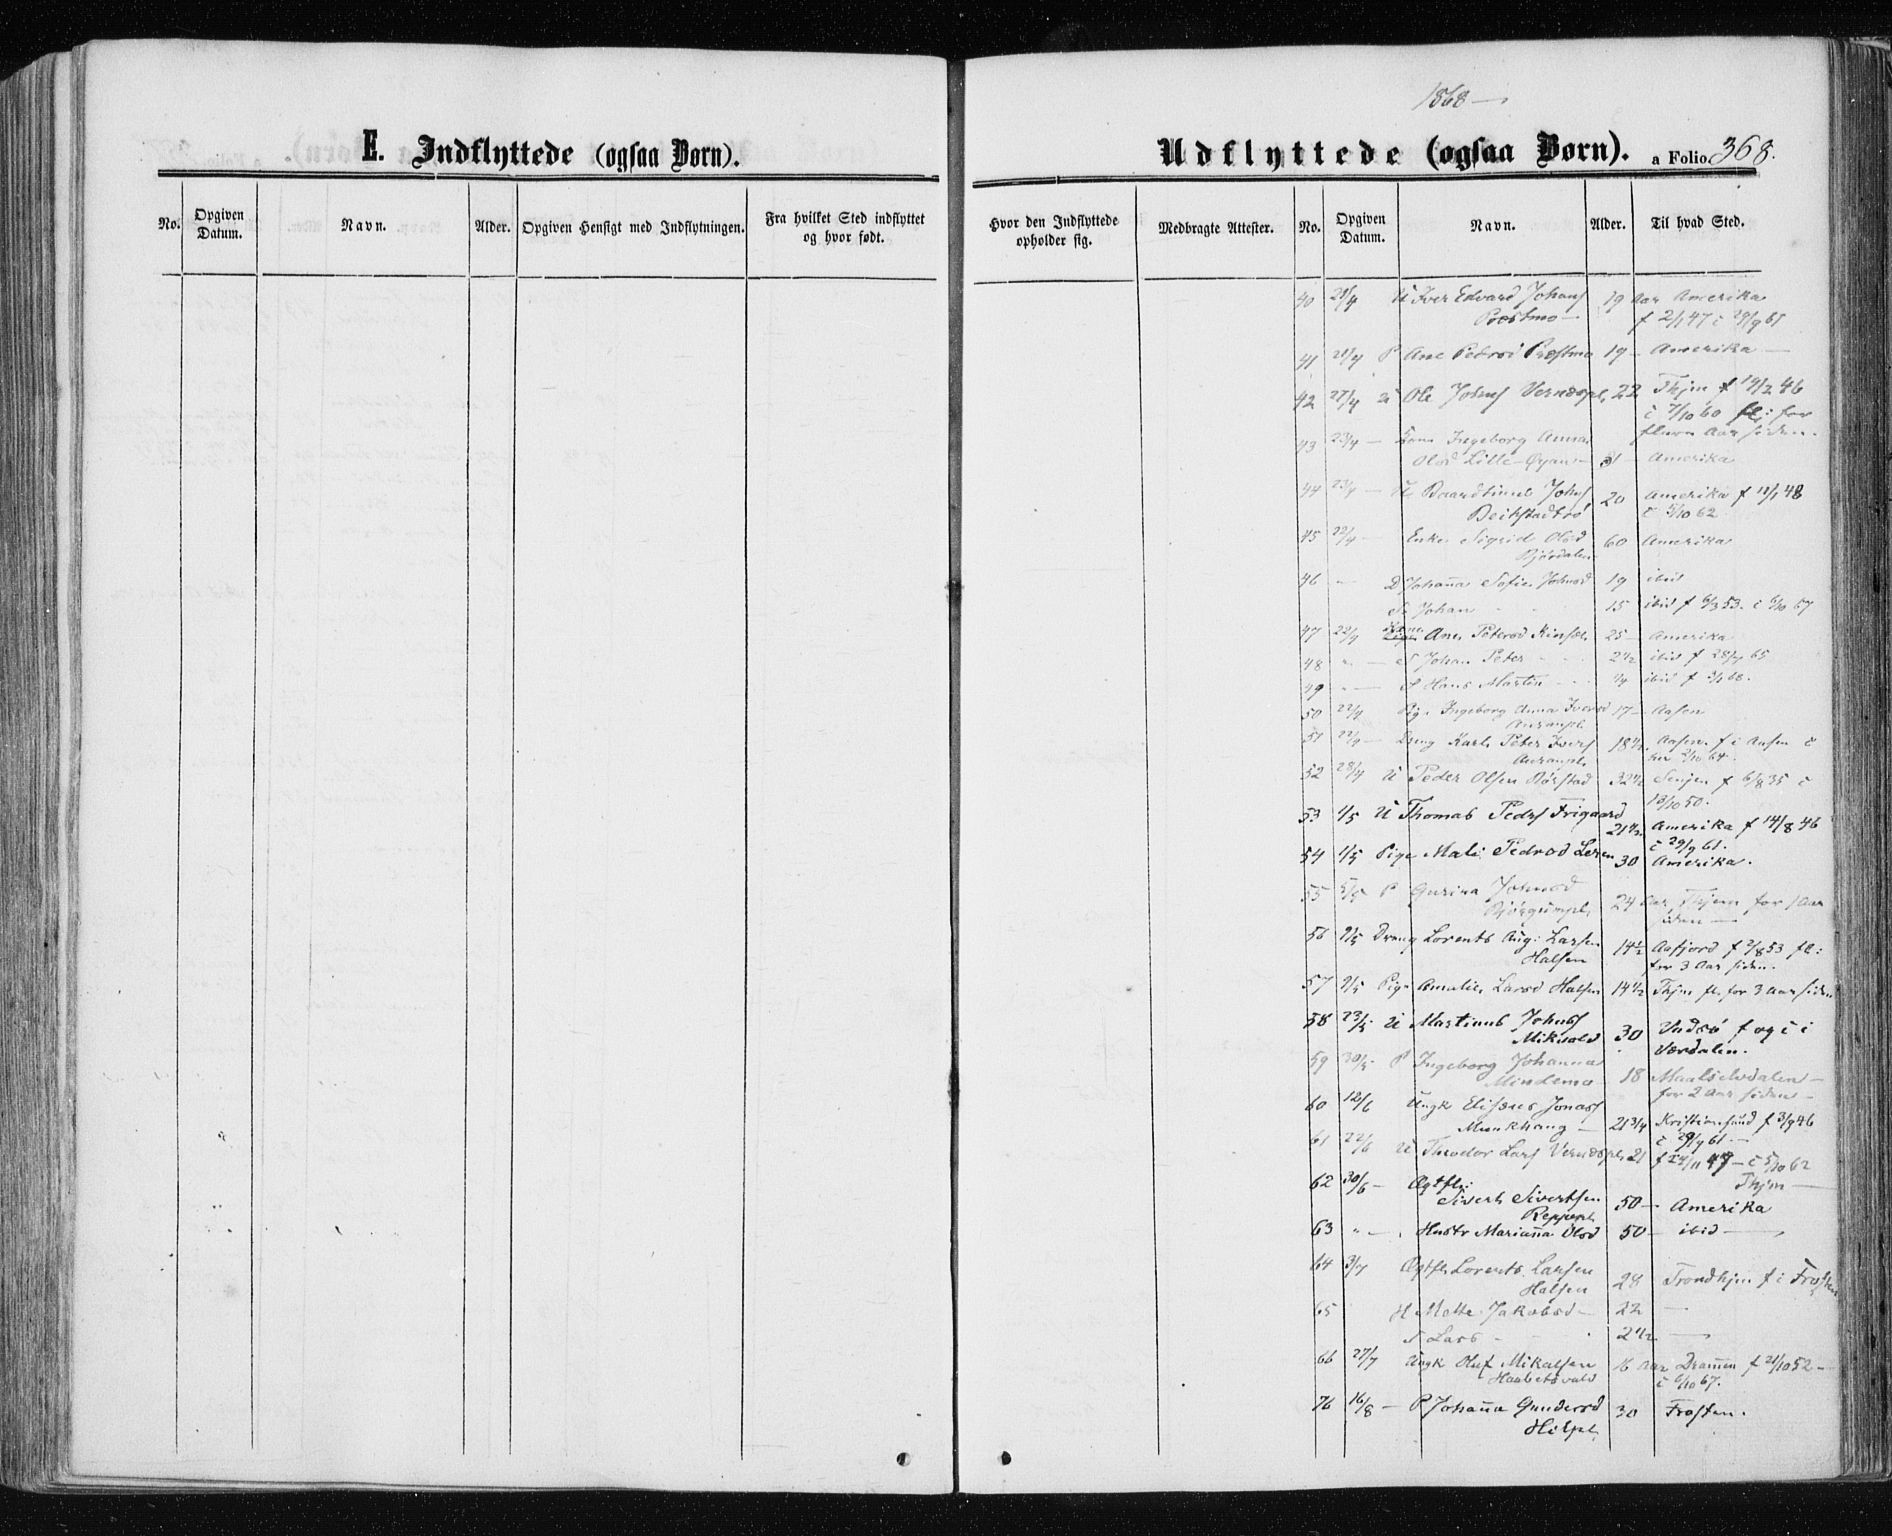 1868 —
E. Indflyttede (ogsaa Børn).
Udflyttede (ogsaa Børn). a Folio 368.
No. Opgiven Datum. Navn. Alder. Opgiven Hensigt med Indflytningen. Fra hvilket Sted indflyttet og hvor født.
Hvor den Indflyttede opholder sig. Medbragte Attester. No. Opgiven Datum. Navn. Alder. Til hvad Sted.
40 21/4 U Iver Edvard Johans 19 Aar Amerika
Præstmo — f 2/1 47 c 29/9 61
41 21/4 P Ane Pedersd Præstmo 19 — Amerika —
42 27/4 U Ole Johns Verdæspl. 22 Thjm f 19/2 46
c 7/10 60 fl: for
flere Aar siden.
43 23/4 — Ingeborg Anna
Olsd Lille-Øyan — 31 Amerika
44 23/4 — U Baardtinus Johns 20 Amerika f 11/1 48
Beitstadbrø c 5/10 62
45 22/4 — Enke Sigrid Olsd 60 Amerika
Björdalen
46 — D Johanna Sofie Johnsd 19 ibid
S Johan 15 ibid f 6/3 53. c 6/10 67
47 22/4 Kone Ane Petersd 25 — Amerika
48 " — S Johan Peter — 2 1/2 ibid f 28/4 65
49 " — S Hans Martin — 1/4 ibid f 3/1 68.
50 22/4 Pige Ingeborg Anna Iversd 17 — Aasen
51 22/4 — Dreng Karl Peter Ivers 18 1/2 Aasen. f i Aasen c
her 2/10 64.
52 28/4 U Peder Olsen Rörstad 32 1/2 Senjen f 6/8 35 c
13/10 50.
53 1/5 U Thomas Peders Frigaard 21 1/2 Amerika f 14/8 46
c 29/9 61.
54 1/5 Pige Mali Pedersd 30 Amerika.
55 5/5 P Gurina Johnsd 24 Aar Thjem for 1 Aar
siden —
56 9/5 Dreng Lorents Aug: Larsen 14 1/2 Aafjord f 7/8 53 fl:
Halsen for 3 Aar siden.
57 9/5 Pige Amalie Larsd Halsen 14 1/2 Thjm fl. for 3 Aar siden
58 23/5 U Martinus Johns 30 Vadsø f og c i
Mikvold Værdalen.
59 30/5 P Ingeborg Johanna
Mindemo 18 Maalselvdalen —
for 2 Aar siden —
60 12/6 Ungk Elisæus Jonas
Munkhaug — 21 3/4 Kristiansund f 3/9 46
c 29/9 61 —
61 22/6 U Theodor Lars Verdæspl. 21 f 24/11 47 — c 5/10 62
Thjm —
62 30/6 — Ægtfl:
Sivert Sivertsen 50 — Amerika
63 " — Hustr Marianna Olsd 50 — ibid —
64 3/7 Ægtfl Lorents Larsen
Halsen 28 Trondhjm f i Frosten
65 H Mette Jakobsd — 22 —
S Lars — 2 1/2 —
66 27/7 Ungk Oluf Mikalsen 16 Aar Dramen f 21/10 52 —
Haabetsvald c 6/10 67.
76 16/8 — P Johanna Gundersd 30 Frosten.